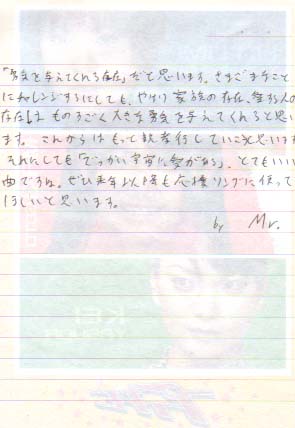 「勇気を与えてくれる存在」だと思います。さまざまなこと
にチャレンジするにしても、やはり家族の存在、
存在はものすごく大きな勇気を与えてくれると思い
ます。これからはもっと親孝行していこうと思います
それにしても「でっかい宇宙に愛がある」、とてもいい
曲ですね。ぜひ来年以降も応援ソングに使って
ほしいと思います。
by Mr.